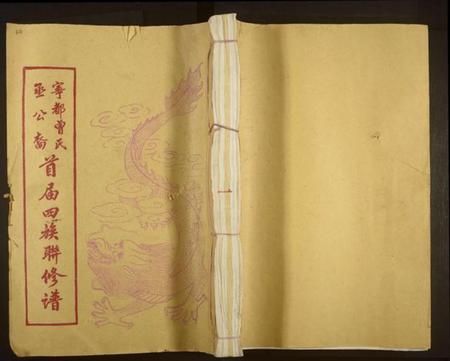 寧都曾氏
巫公裔
首届四族聯修譜
一